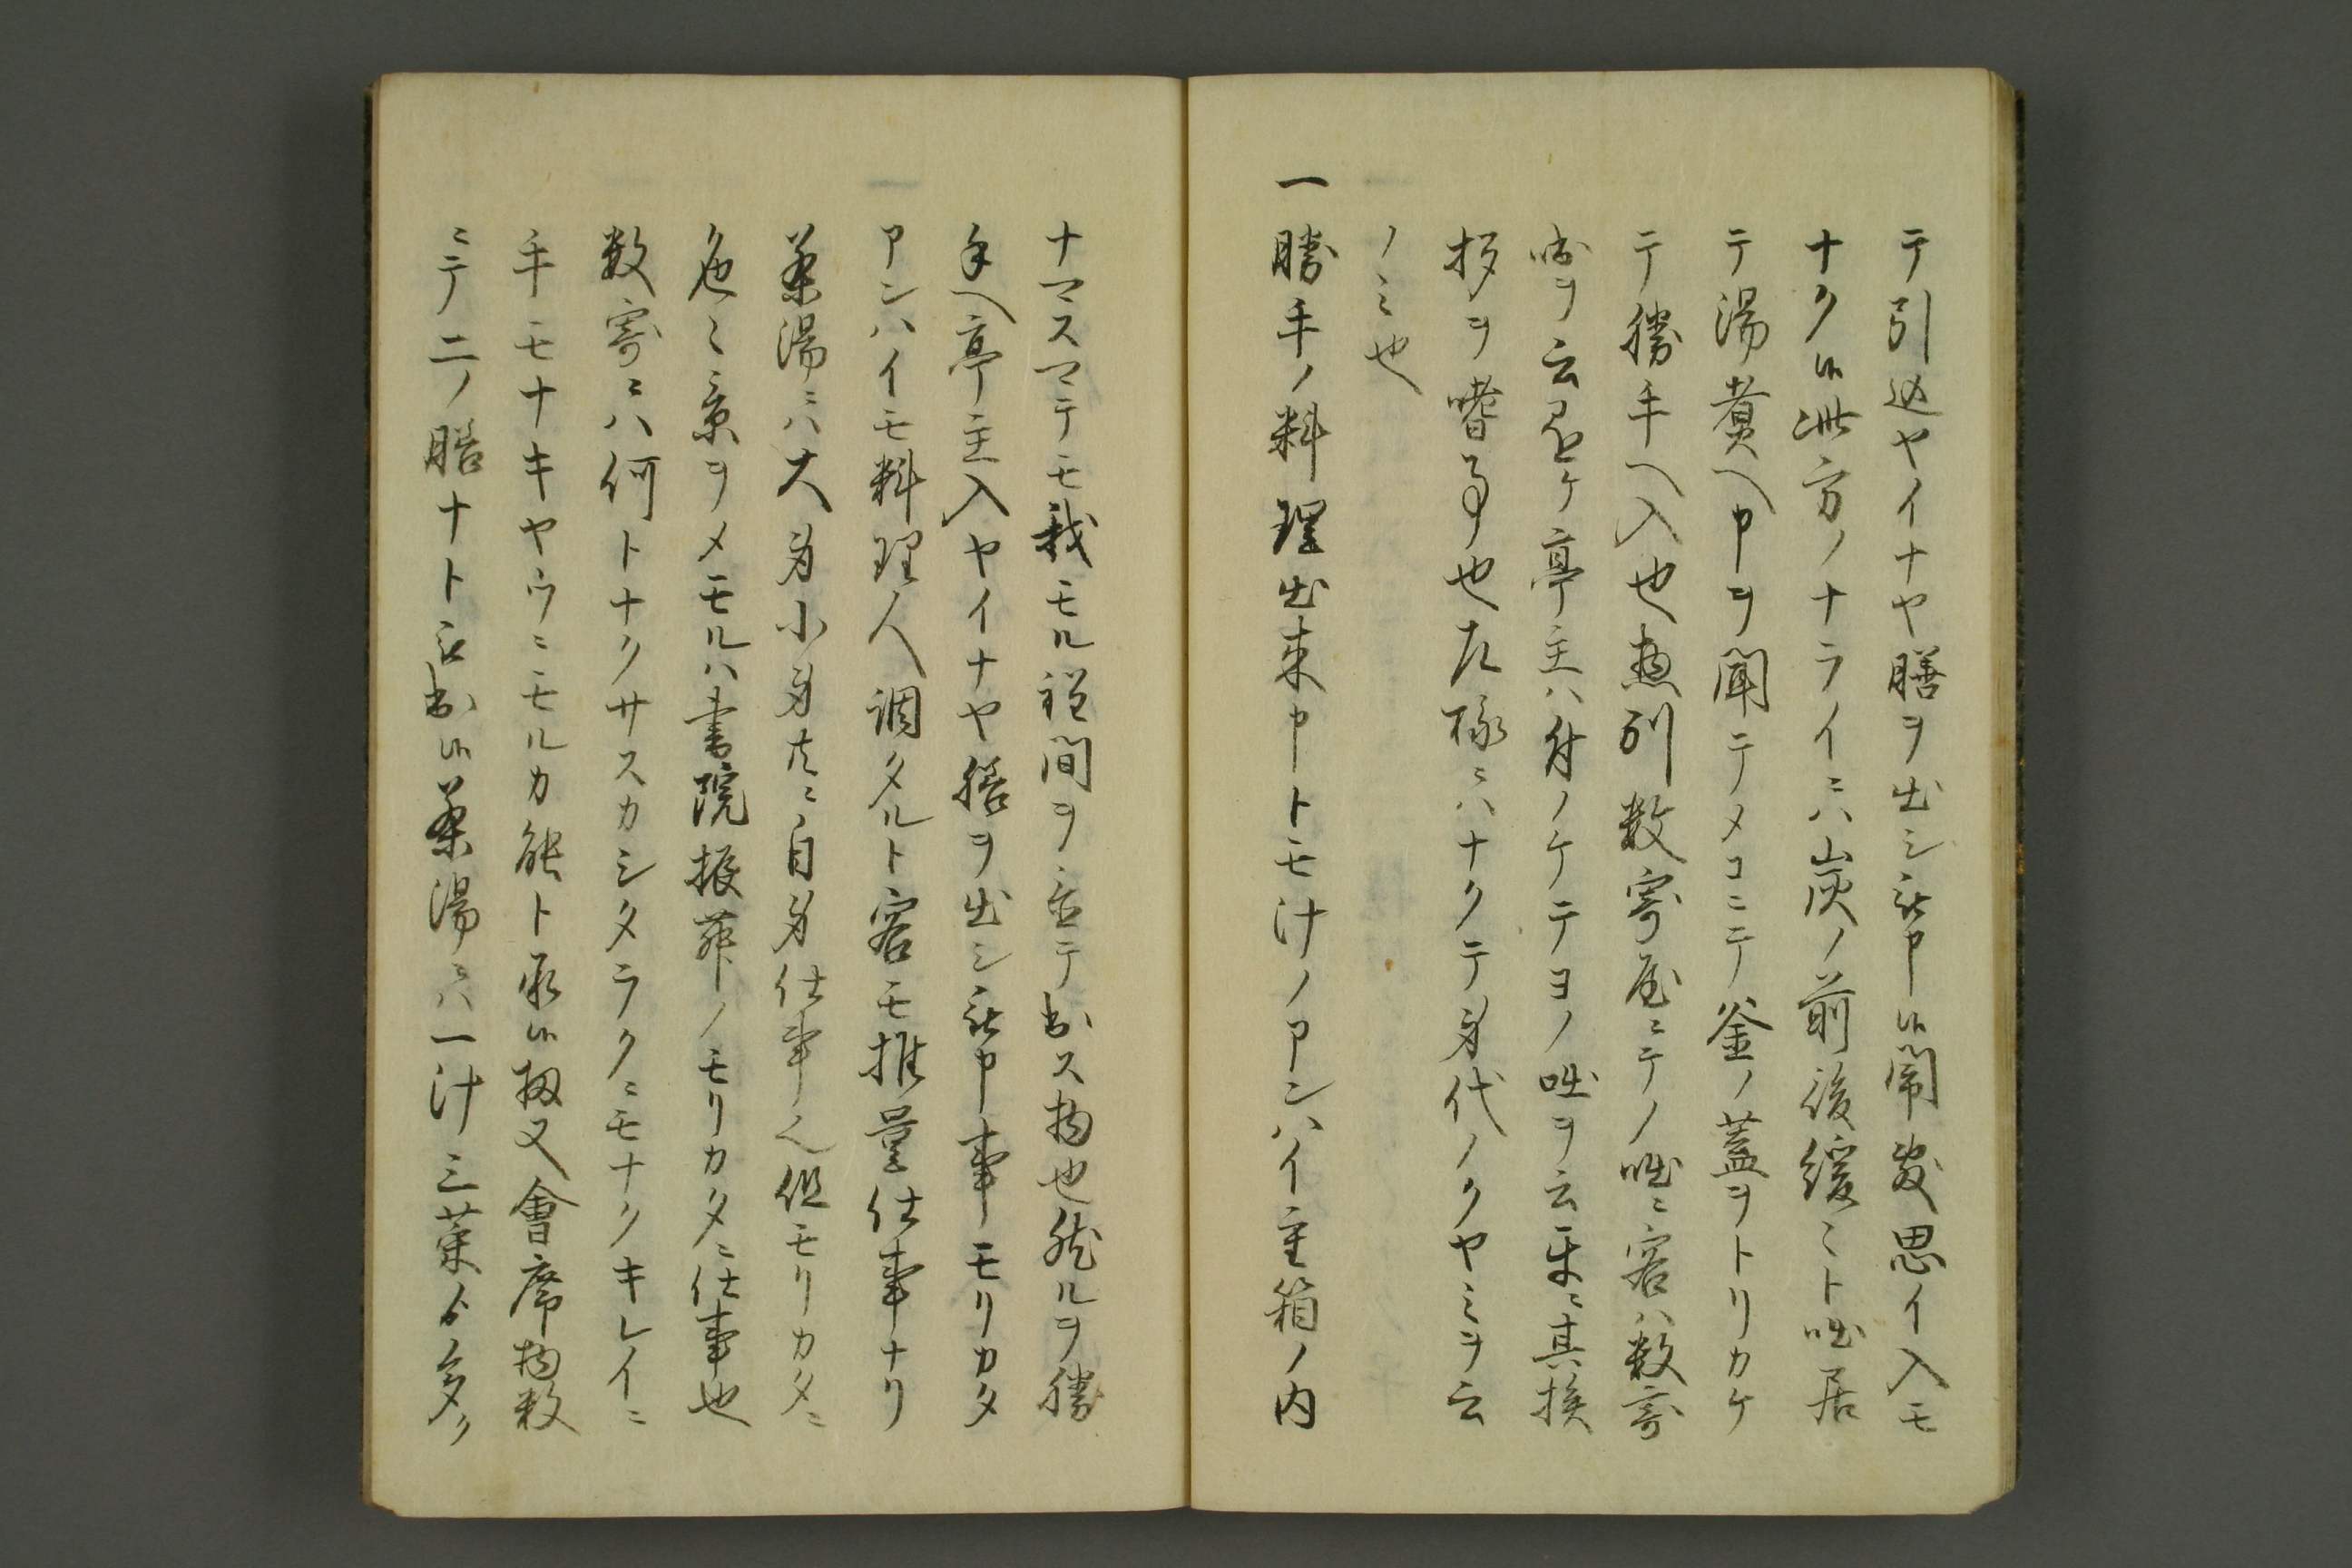 テ引込ヤイナヤ膳ヲ出シ被申候間発思イ入モ
ナク候此方ノナライニハ炭ノ前後緩ミト咄居
テ湯煮ヘ申ヲ聞テメコニテ釜ノ蓋ヲトリカケ
テ勝手ヘ入也惣別数寄屋ニテノ咄ニ客ハ数寄
咄ヲ云 亭主ハ身ノケテヨノ咄ヲ云 其挨
拶ヲ嗜事也左様ニハナクテ身代ノクヤミヲ云
ノミ也
一勝手ノ料理出来申トモ汁ノアンハイ重箱ノ内
ナマスマテモ我モル程間ヲ 出ス物也然ルヲ勝
手ヘ亭主入ヤイナヤ膳ヲ出シ被申事モリカタ
アンハイモ料理人調タルト客モ推量仕事ナリ
茶湯ニハ大身小身共ニ自身仕事也但モリカタニ
色ミ景ヲメモルハ書院振舞ノモリカタニ仕事也
数寄ニハ何トナクサスカシタラクニモナクキレイニ
手モナキヤウニモルカ能ト承候扨又會席物数
ニテ二ノ膳ナト被出候茶湯ニハ一汁三菜ヨリ多ク